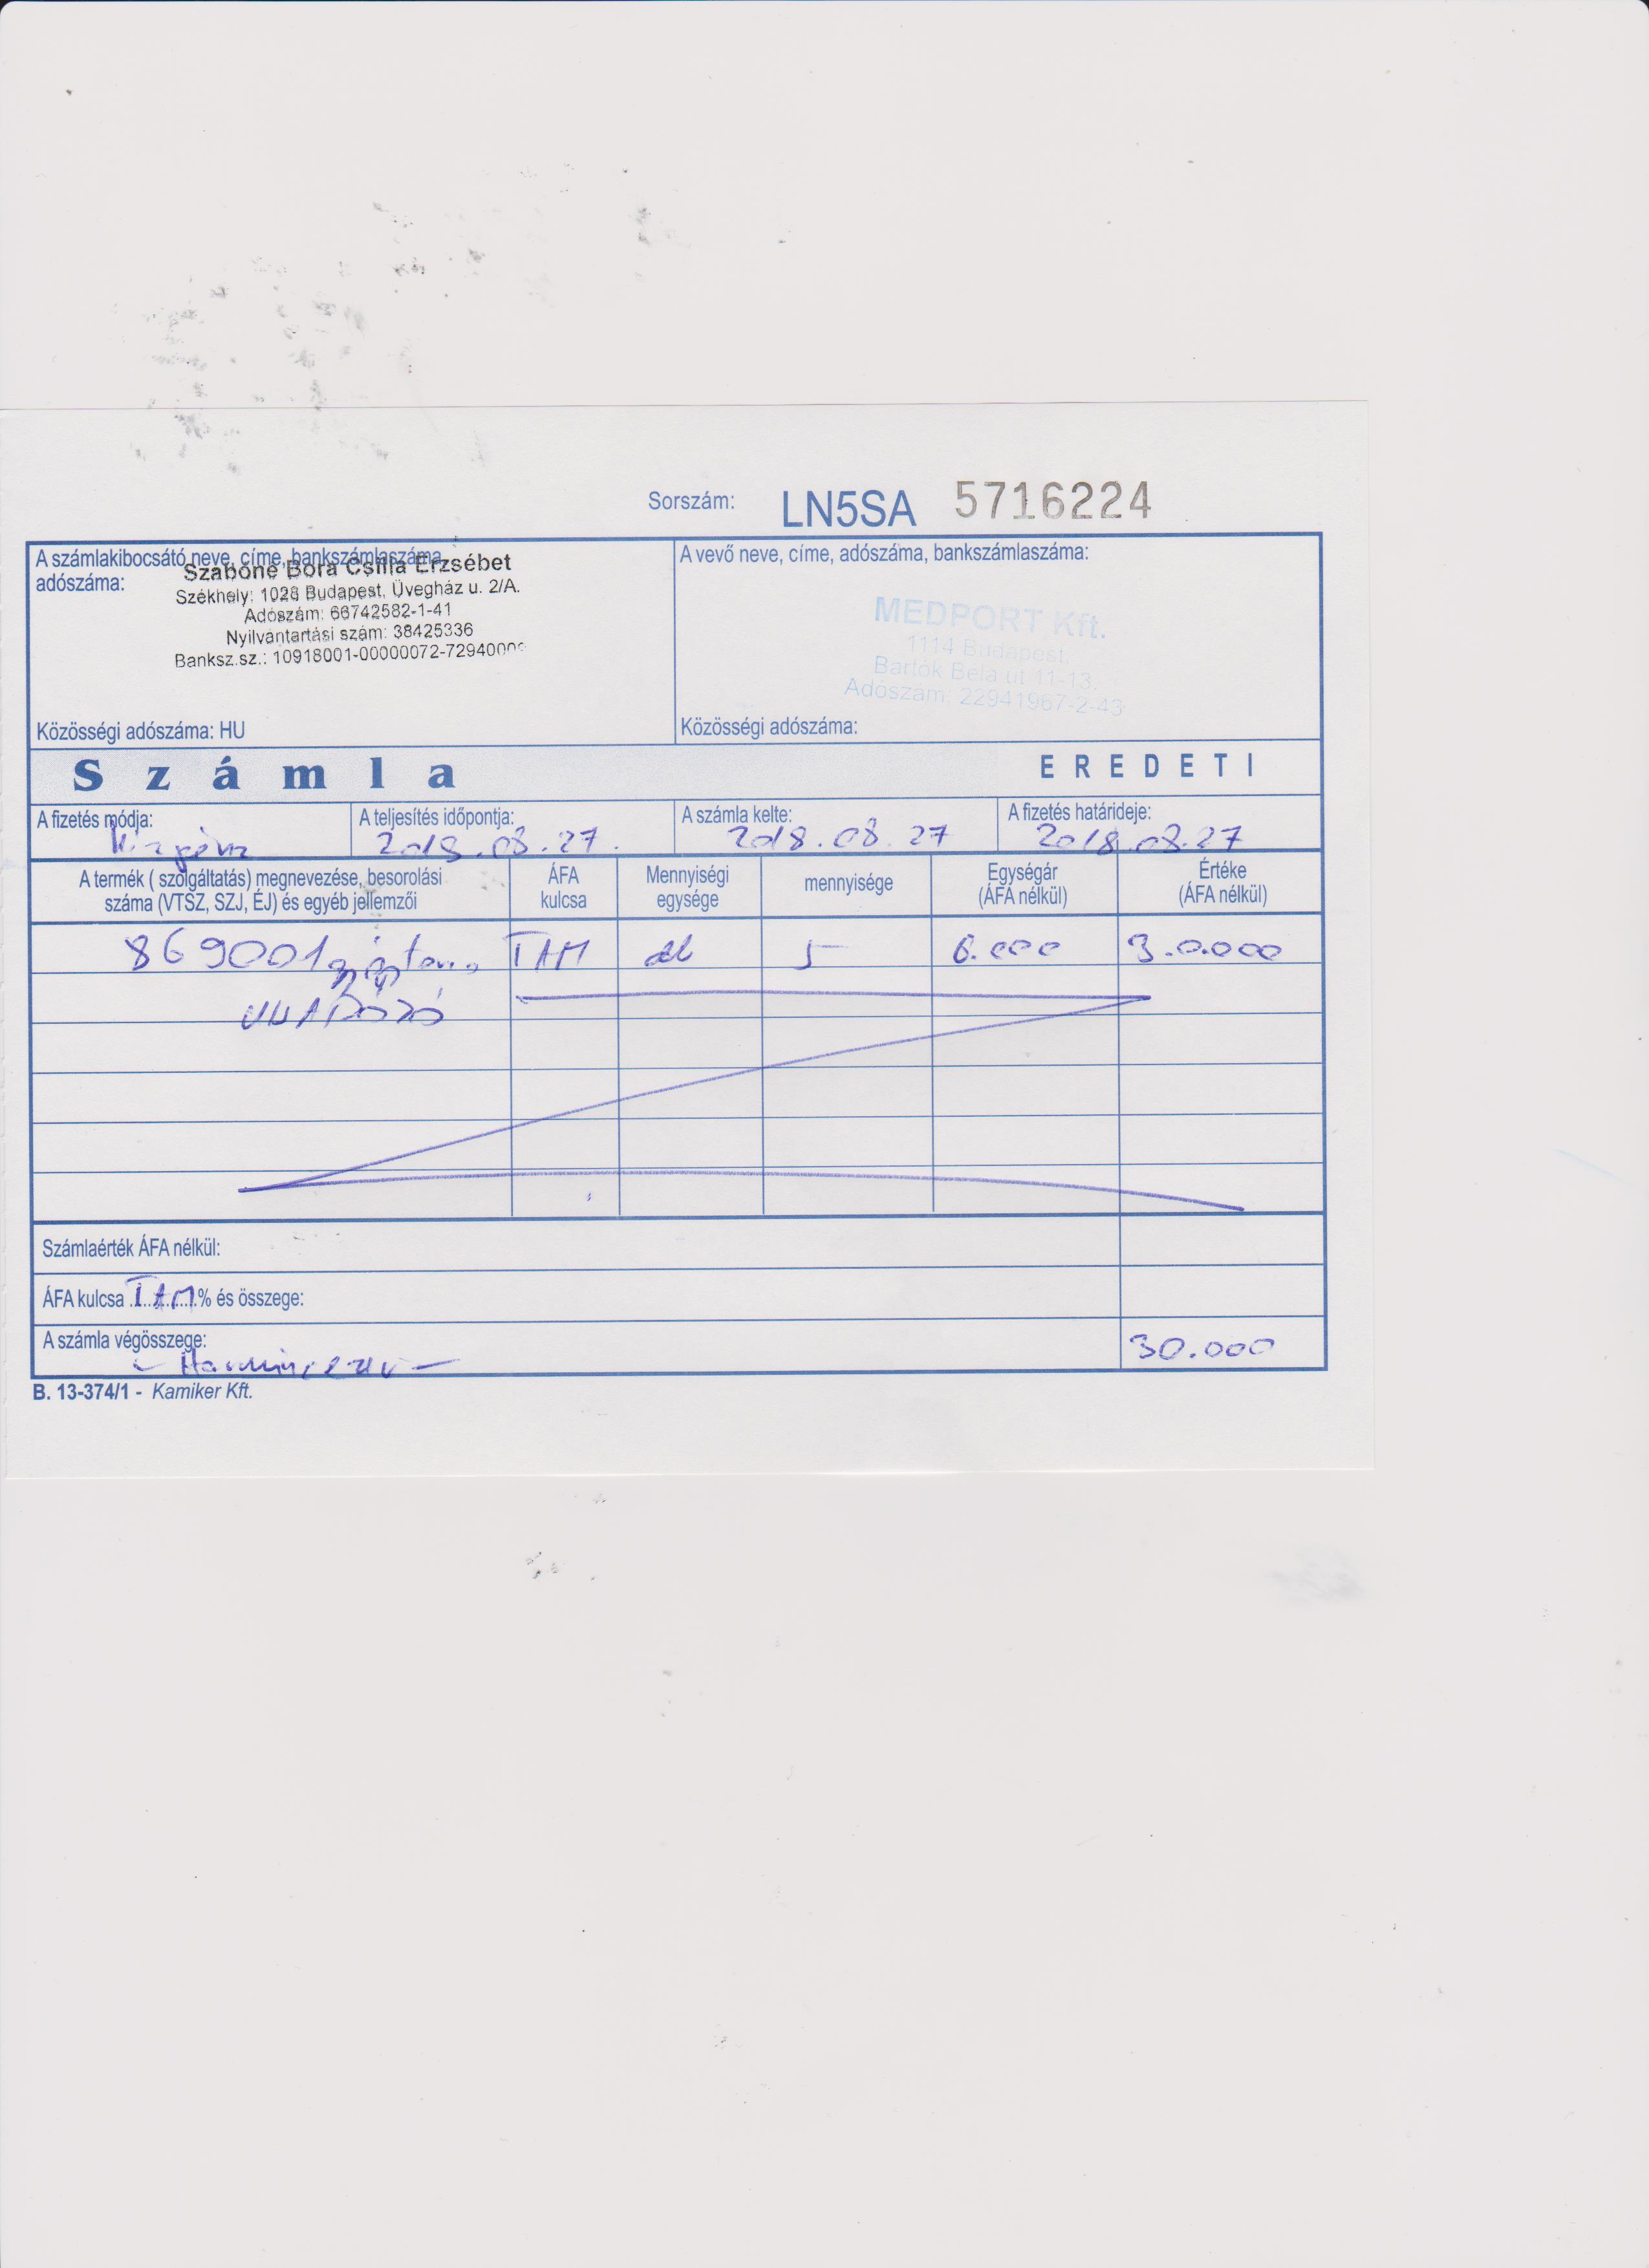 Sorszám: LN5SA 5716224
A számlakibocsátó neve, címe, bankszámlaszáma,
adószáma:
Szabóné Bora Csilla Erzsébet
Székhely: 1028 Budapest, Üvegház u. 2/A.
Adószám: 66742582-1-41
Nyilvántartási szám: 38425336
Banksz.sz.: 10918001-00000072-72940009
Közösségi adószáma: HU
A vevő neve, címe, adószáma, bankszámlaszáma:
MEDPORT Kft.
1114 Budapest,
Bartók Béla út 11-13.
Adószám: 22941967-2-43
Közösségi adószáma:
Számla
EREDETI
A fizetés módja:
A teljesítés időpontja:
2018.08.27.
A számla kelte:
2018.08.27
A fizetés határideje:
2018.08.27
A termék ( szolgáltatás) megnevezése, besorolási
száma (VTSZ, SZJ, ÉJ) és egyéb jellemzői
ÁFA
kulcsa
Mennyiségi
egysége
mennyisége
Egységár
(ÁFA nélkül)
Értéke
(ÁFA nélkül)
869001 TAM db 5 6.000 30.000
Számlaérték ÁFA nélkül:
ÁFA kulcsa TAM % és összege:
A számla végösszege: 30.000
B. 13-374/1 - Kamiker Kft.